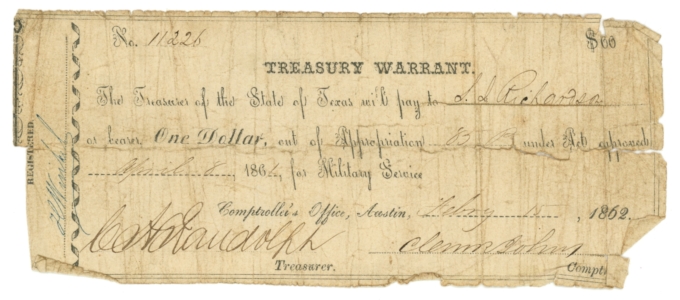 No. 11226 $ 00
TREASURY WARRANT.
The Treasurer of the State of Texas will pay to S. S. Richardson
or bearer, One Dollar, out of Appropriation under Act approved
186 , for Military Service
Comptroller's Office, Austin, 15 , 1862.
C H Randolph Clem R Johns
Treasurer. Compt
REGISTERED.